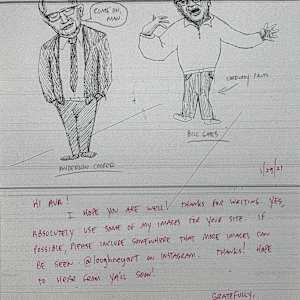 COME ON, MAN
CORDUROY PANTS
BILL GATES
ANDERSON COOPER
1/29/21
HI AVA!
I HOPE YOU ARE WELL! THANKS FOR WRITING. YES,
ABSOLUTELY USE SOME OF MY IMAGES FOR YOUR SITE. IF
POSSIBLE, PLEASE INCLUDE SOMEWHERE THAT MORE IMAGES CAN
BE SEEN @loughneyart ON INSTAGRAM. THANKS! HOPE
TO HEAR FROM YA'LL SOON!
GRATEFULLY,